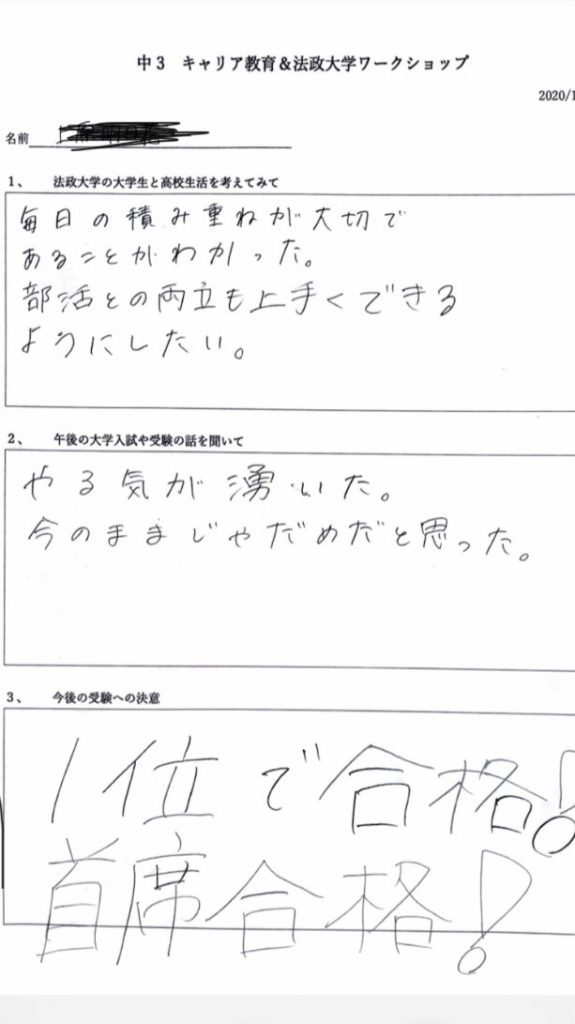 中3　キャリア教育&法政大学ワークショップ
2020/1
名前
1、　法政大学の大学生と高校生活を考えてみて
毎日の積み重ねが大切で
あることがわかった。
部活との両立も上手くできる
ようにしたい。
2、　午後の大学入試や受験の話を聞いて
やる気が湧いた。
今のままじゃだめだと思った。
3、　今後の受験への決意
1位で合格!
首席合格!